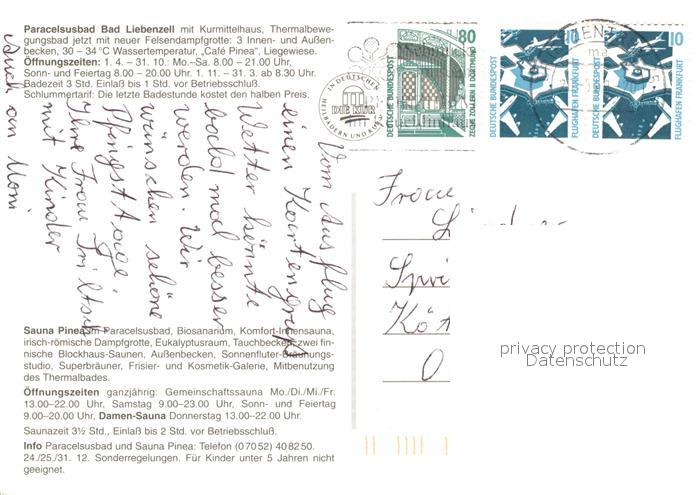 Paracelsusbad Bad Liebenzell mit Kurmittelhaus, Thermalbewe-
gungsbad jetzt mit neuer Felsendampfgrotte: 3 Innen- und Außen-
becken, 30 – 34 °C Wassertemperatur, „Café Pinea“, Liegewiese.
Öffnungszeiten: 1. 4. – 31. 10.: Mo.-Sa. 8.00 – 21.00 Uhr,
Sonn- und Feiertag 8.00 - 20.00 Uhr. 1. 11. – 31. 3. ab 8.30 Uhr.
Badezeit 3 Std. Einlaß bis 1 Std. vor Betriebsschluß.
Schlummertarif: Die letzte Badestunde kostet den halben Preis.
Vom Ausflug
einen Kartengruß
Wetter könnte
bald mal besser
werden. Wir
wünschen schöne
Pfingsttage
Ihre Frau
mit Kinder
Auch an Moni
Sauna Pinea im Paracelsusbad, Biosanarium, Komfort-Innensauna,
irisch-römische Dampfgrotte, Eukalyptusraum, Tauchbecken, zwei fin-
nische Blockhaus-Saunen, Außenbecken, Sonnenfluter-Bräunungs-
studio, Superbräuner, Frisier- und Kosmetik-Galerie, Mitbenutzung
des Thermalbades.
Öffnungszeiten ganzjährig: Gemeinschaftssauna Mo./Di./Mi./Fr.
13.00–22.00 Uhr, Samstag 9.00–23.00 Uhr, Sonn- und Feiertag
9.00–20.00 Uhr, Damen-Sauna Donnerstag 13.00–22.00 Uhr.
Saunazeit 3½ Std., Einlaß bis 2 Std. vor Betriebsschluß.
Info Paracelsusbad und Sauna Pinea: Telefon (0 70 52) 40 82 50.
24./25./31. 12. Sonderregelungen. Für Kinder unter 5 Jahren nicht
geeignet.
IN DEUTSCHEN
DIE KUR
HEILBÄDERN UND KURORTEN
80
DEUTSCHE BUNDESPOST
ZECHE ZOLLERN II DORTMUND
10
DEUTSCHE BUNDESPOST
FLUGHAFEN FRANKFURT
10
DEUTSCHE BUNDESPOST
FLUGHAFEN FRANKFURT
Frau
privacy protection
Datenschutz